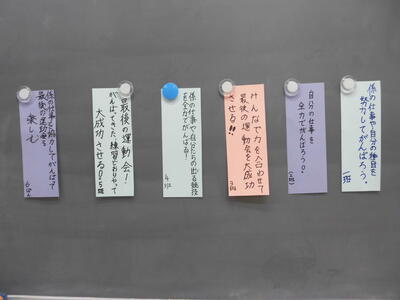 係の仕事や自分の種目を
努力してがんばろう。
一班
自分の仕事を
全力でがんばろう。
(2班)
みんなで力を合わせて
最後の運動会を大成功
させる!!
3班
係の仕事や自分たちの出る競技
を全力でがんばる!
4班
最後の運動会!
がんばってきた練習どおりやって
大成功させる。
5班
係の仕事を協力してがんばって
最後の運動会を
楽しむ